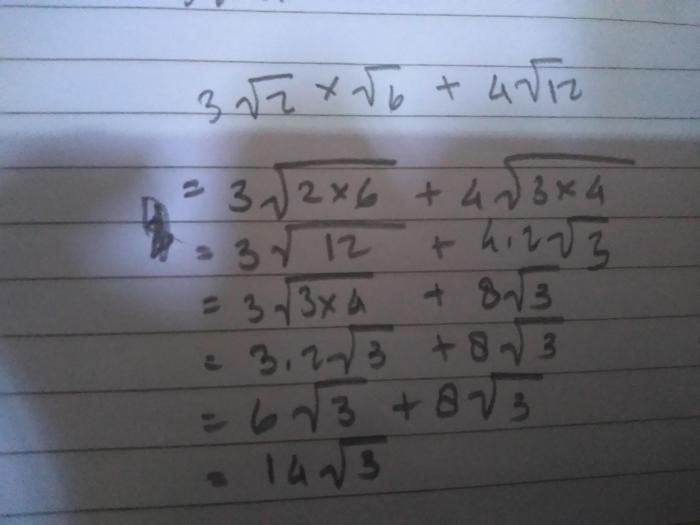 3√2 × √6 + 4√12
= 3√(2×6) + 4√(3×4)
= 3√12 + 4.2√3
= 3√(3×4) + 8√3
= 3.2√3 + 8√3
= 6√3 + 8√3
= 14√3